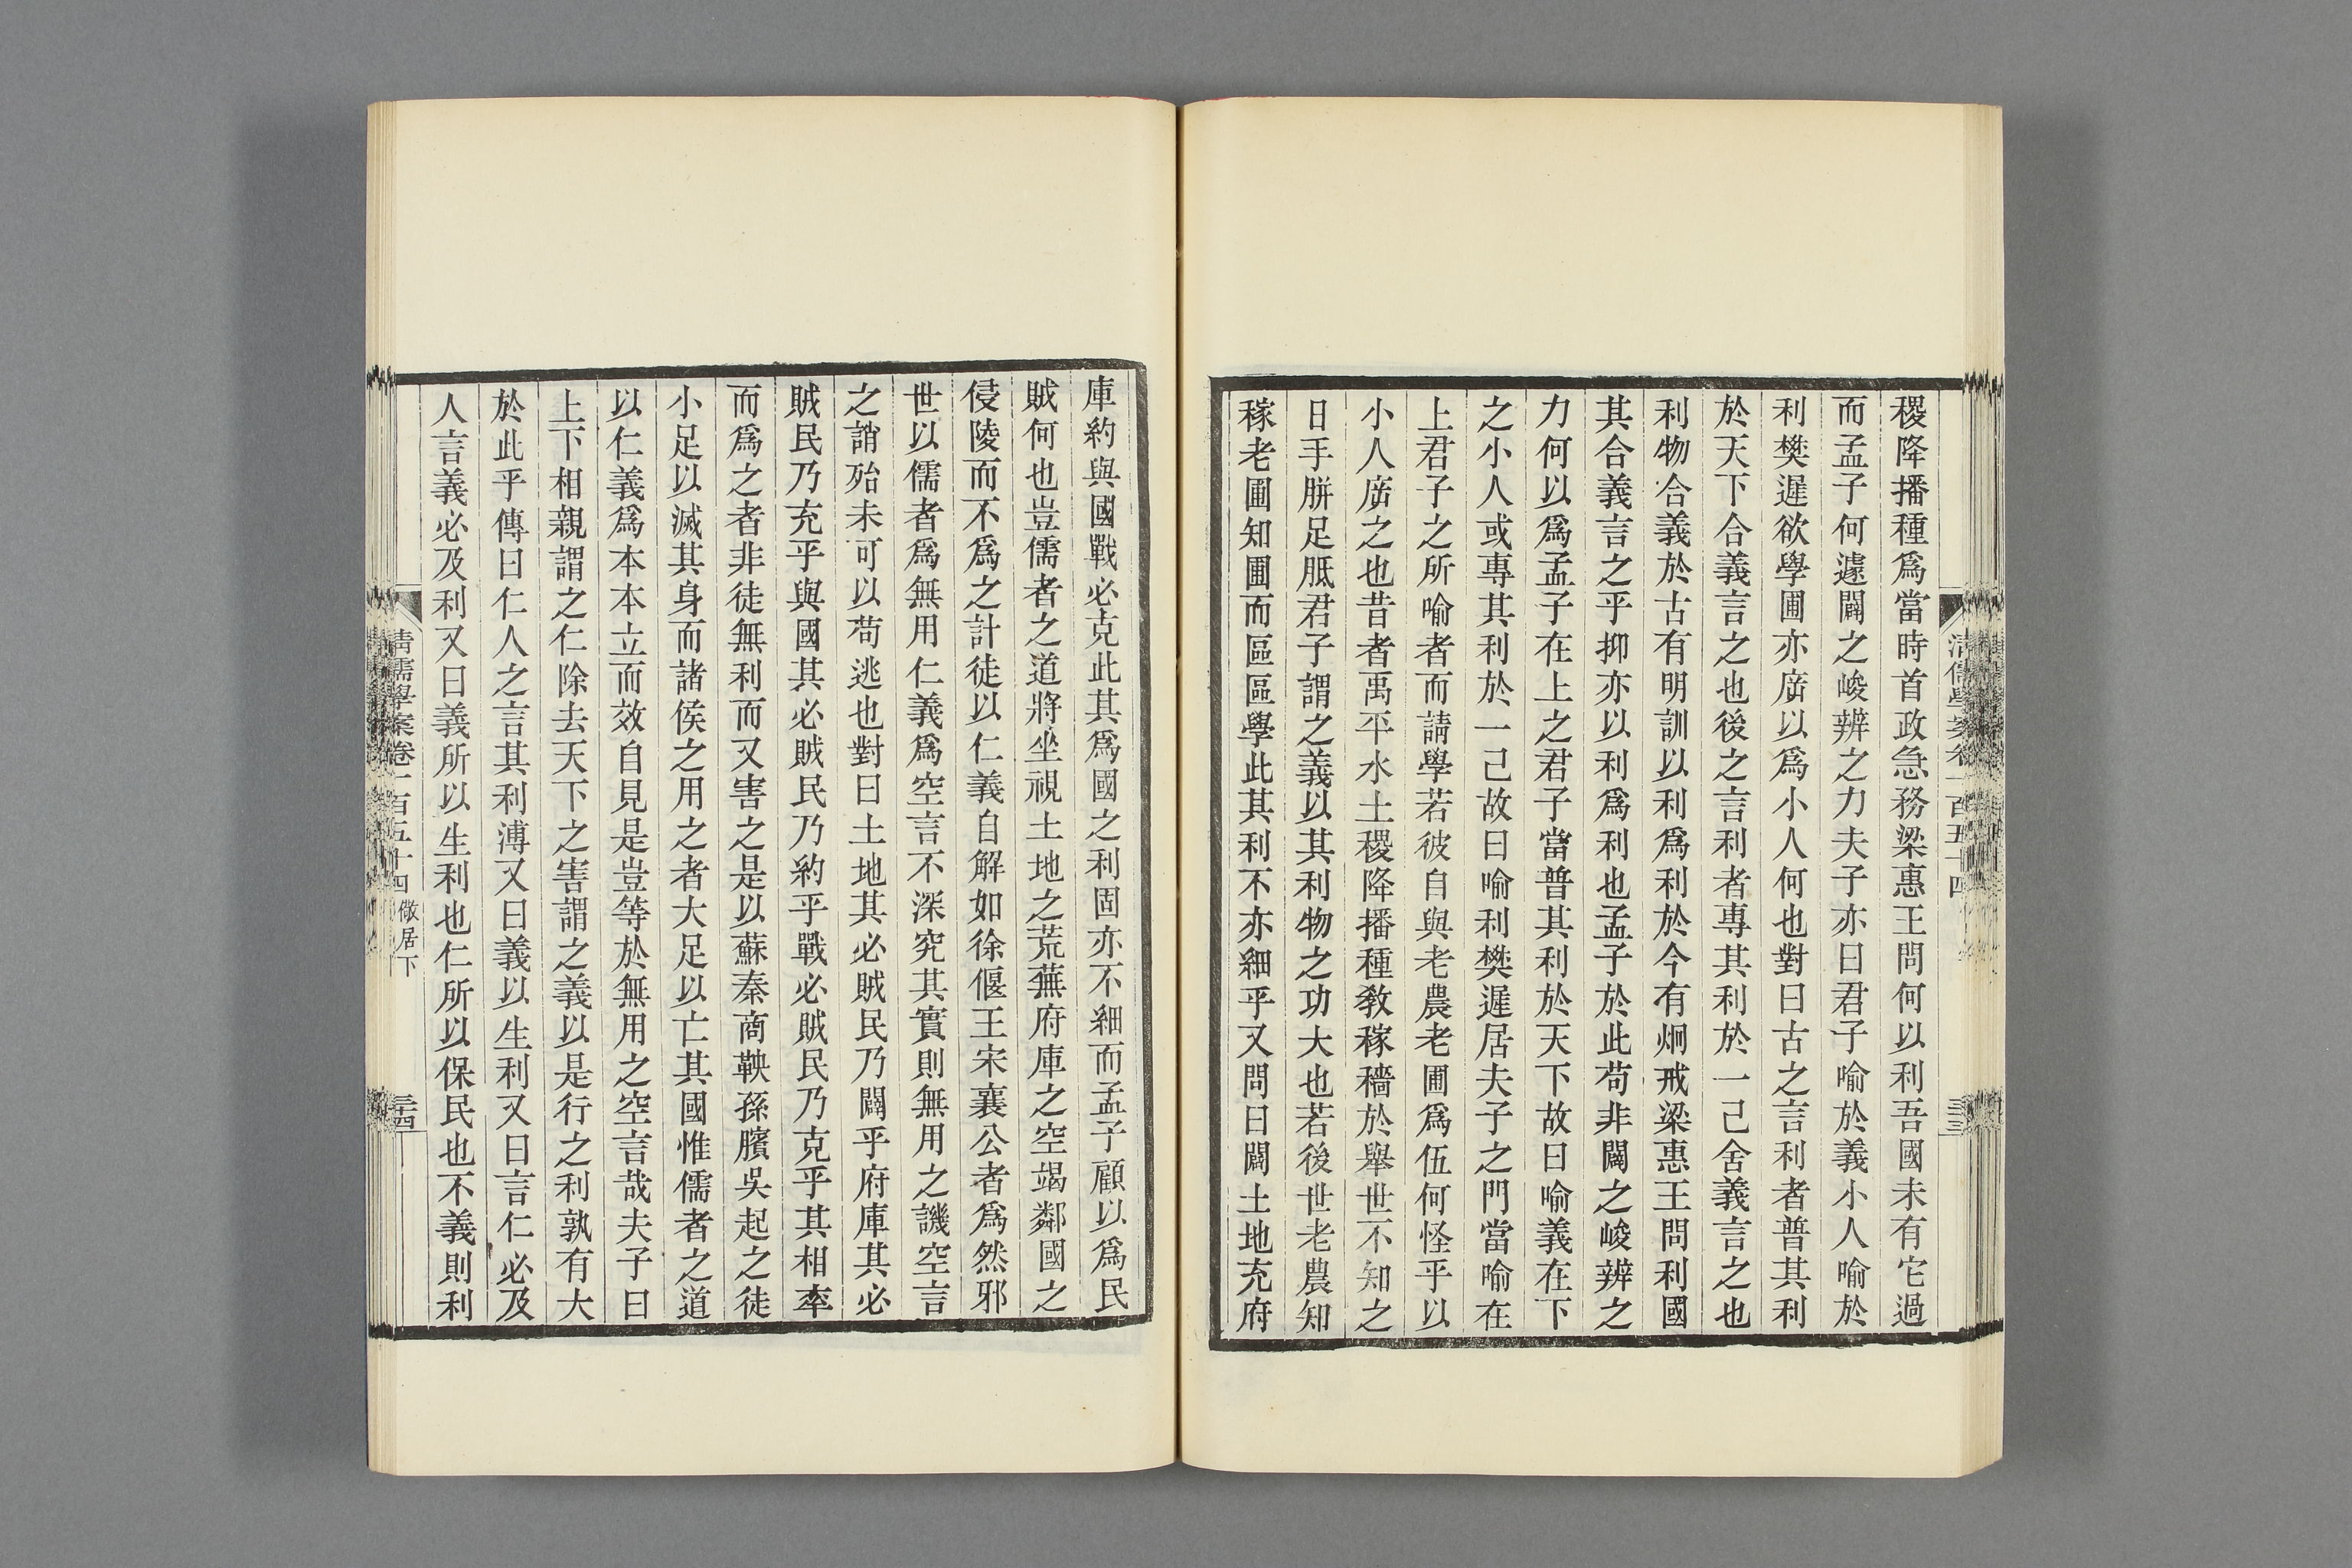 稷降播種爲當時首政急務梁惠王問何以利吾國未有它過
而孟子何遽闢之峻辨之力夫子亦曰君子喻於義小人喻於
利樊遲欲學圃亦庿以爲小人何也對曰古之言利者普其利
於天下合義言之也後之言利者專其利於一己舍義言之也
利物合義於古有明訓以利爲利於今有炯戒梁惠王問利國
其合義言之乎抑亦以利爲利也孟子於此苟非闢之峻辨之
力何以爲孟子在上之君子當普其利於天下故曰喻義在下
之小人或專其利於一己故曰喻利樊遲居夫子之門當喻在
上君子之所喻者而請學若彼自與老農老圃爲伍何怪乎以
小人庿之也昔者禹平水土稷降播種教稼穡於舉世不知之
日手胼足胝君子謂之義以其利物之功大也若後世老農知
稼老圃知圃而區區學此其利不亦細乎又問曰闢土地充府
清儒學案卷一百五十四
三三
庫約與國戰必克此其爲國之利固亦不細而孟子顧以爲民
賊何也豈儒者之道將坐視土地之荒蕪府庫之空竭鄰國之
侵陵而不爲之計徒以仁義自解如徐偃王宋襄公者爲然邪
世以儒者爲無用仁義爲空言不深究其實則無用之譏空言
之誚殆未可以苟逃也對曰土地其必賊民乃闢乎府庫其必
賊民乃充乎與國其必賊民乃約乎戰必賊民乃克乎其相率
而爲之者非徒無利而又害之是以蘇秦商鞅孫臏吳起之徒
小足以滅其身而諸侯之用之者大足以亡其國惟儒者之道
以仁義爲本本立而效自見是豈等於無用之空言哉夫子曰
上下相親謂之仁除去天下之害謂之義以是行之利孰有大
於此乎傳曰仁人之言其利溥又曰義以生利又曰言仁必及
人言義必及利又曰義所以生利也仁所以保民也不義則利
清儒學案卷一百五十四 儆居下
三四